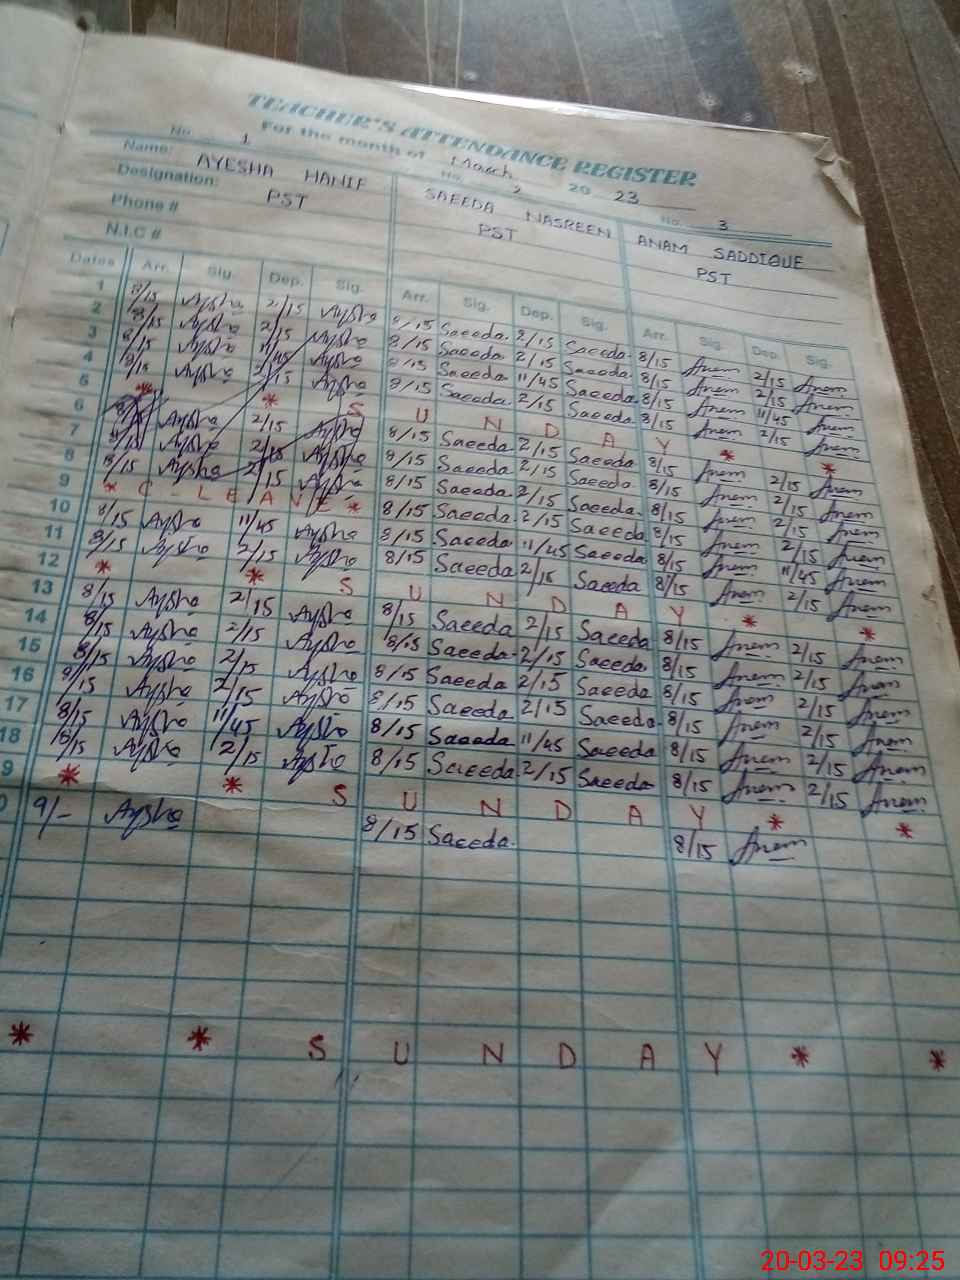 TEACHER'S ATTENDANCE REGISTER
For the month of March 2023
No. 1 No. 2 No. 3
Name: AYESHA HANIF SAEEDA NASREEN ANAM SADDIQUE
Designation: PST PST PST
Phone #
N.I.C #
Dates Arr. Sig. Dep. Sig. Arr. Sig. Dep. Sig. Arr. Sig. Dep. Sig.
1 8/15 Aysha 2/15 Aysha 8/15 Saeeda 2/15 Saeeda 8/15 Anem 2/15 Anem
2 8/15 Aysha 2/15 Aysha 8/15 Saeeda 2/15 Saeeda 8/15 Anem 2/15 Anem
3 8/15 Aysha 11/45 Aysha 8/15 Saeeda 11/45 Saeeda 8/15 Anem 11/45 Anem
4 8/15 Aysha 2/15 Aysha 8/15 Saeeda 2/15 Saeeda 8/15 Anem 2/15 Anem
5 * * S U N D A Y * *
6 8/15 Aysha 2/15 Aysha 8/15 Saeeda 2/15 Saeeda 8/15 Anem 2/15 Anem
7 8/15 Aysha 2/15 Aysha 8/15 Saeeda 2/15 Saeeda 8/15 Anem 2/15 Anem
8 8/15 Aysha 2/15 Aysha 8/15 Saeeda 2/15 Saeeda 8/15 Anem 2/15 Anem
9 * C - L E A V E * 8/15 Saeeda 2/15 Saeeda 8/15 Anem 2/15 Anem
10 8/15 Aysha 11/45 Aysha 8/15 Saeeda 11/45 Saeeda 8/15 Anem 11/45 Anem
11 8/15 Aysha 2/15 Aysha 8/15 Saeeda 2/15 Saeeda 8/15 Anem 2/15 Anem
12 * * S U N D A Y * *
13 8/15 Aysha 2/15 Aysha 8/15 Saeeda 2/15 Saeeda 8/15 Anem 2/15 Anem
14 8/15 Aysha 2/15 Aysha 8/15 Saeeda 2/15 Saeeda 8/15 Anem 2/15 Anem
15 8/15 Aysha 2/15 Aysha 8/15 Saeeda 2/15 Saeeda 8/15 Anem 2/15 Anem
16 8/15 Aysha 2/15 Aysha 8/15 Saeeda 2/15 Saeeda 8/15 Anem 2/15 Anem
17 8/15 Aysha 11/45 Aysha 8/15 Saeeda 11/45 Saeeda 8/15 Anem 2/15 Anem
18 8/15 Aysha 2/15 Aysha 8/15 Saeeda 2/15 Saeeda 8/15 Anem 2/15 Anem
9 * * S U N D A Y * *
0 9/- Aysha 8/15 Saeeda 8/15 Anem
* * S U N D A Y * *
20-03-23 09:25